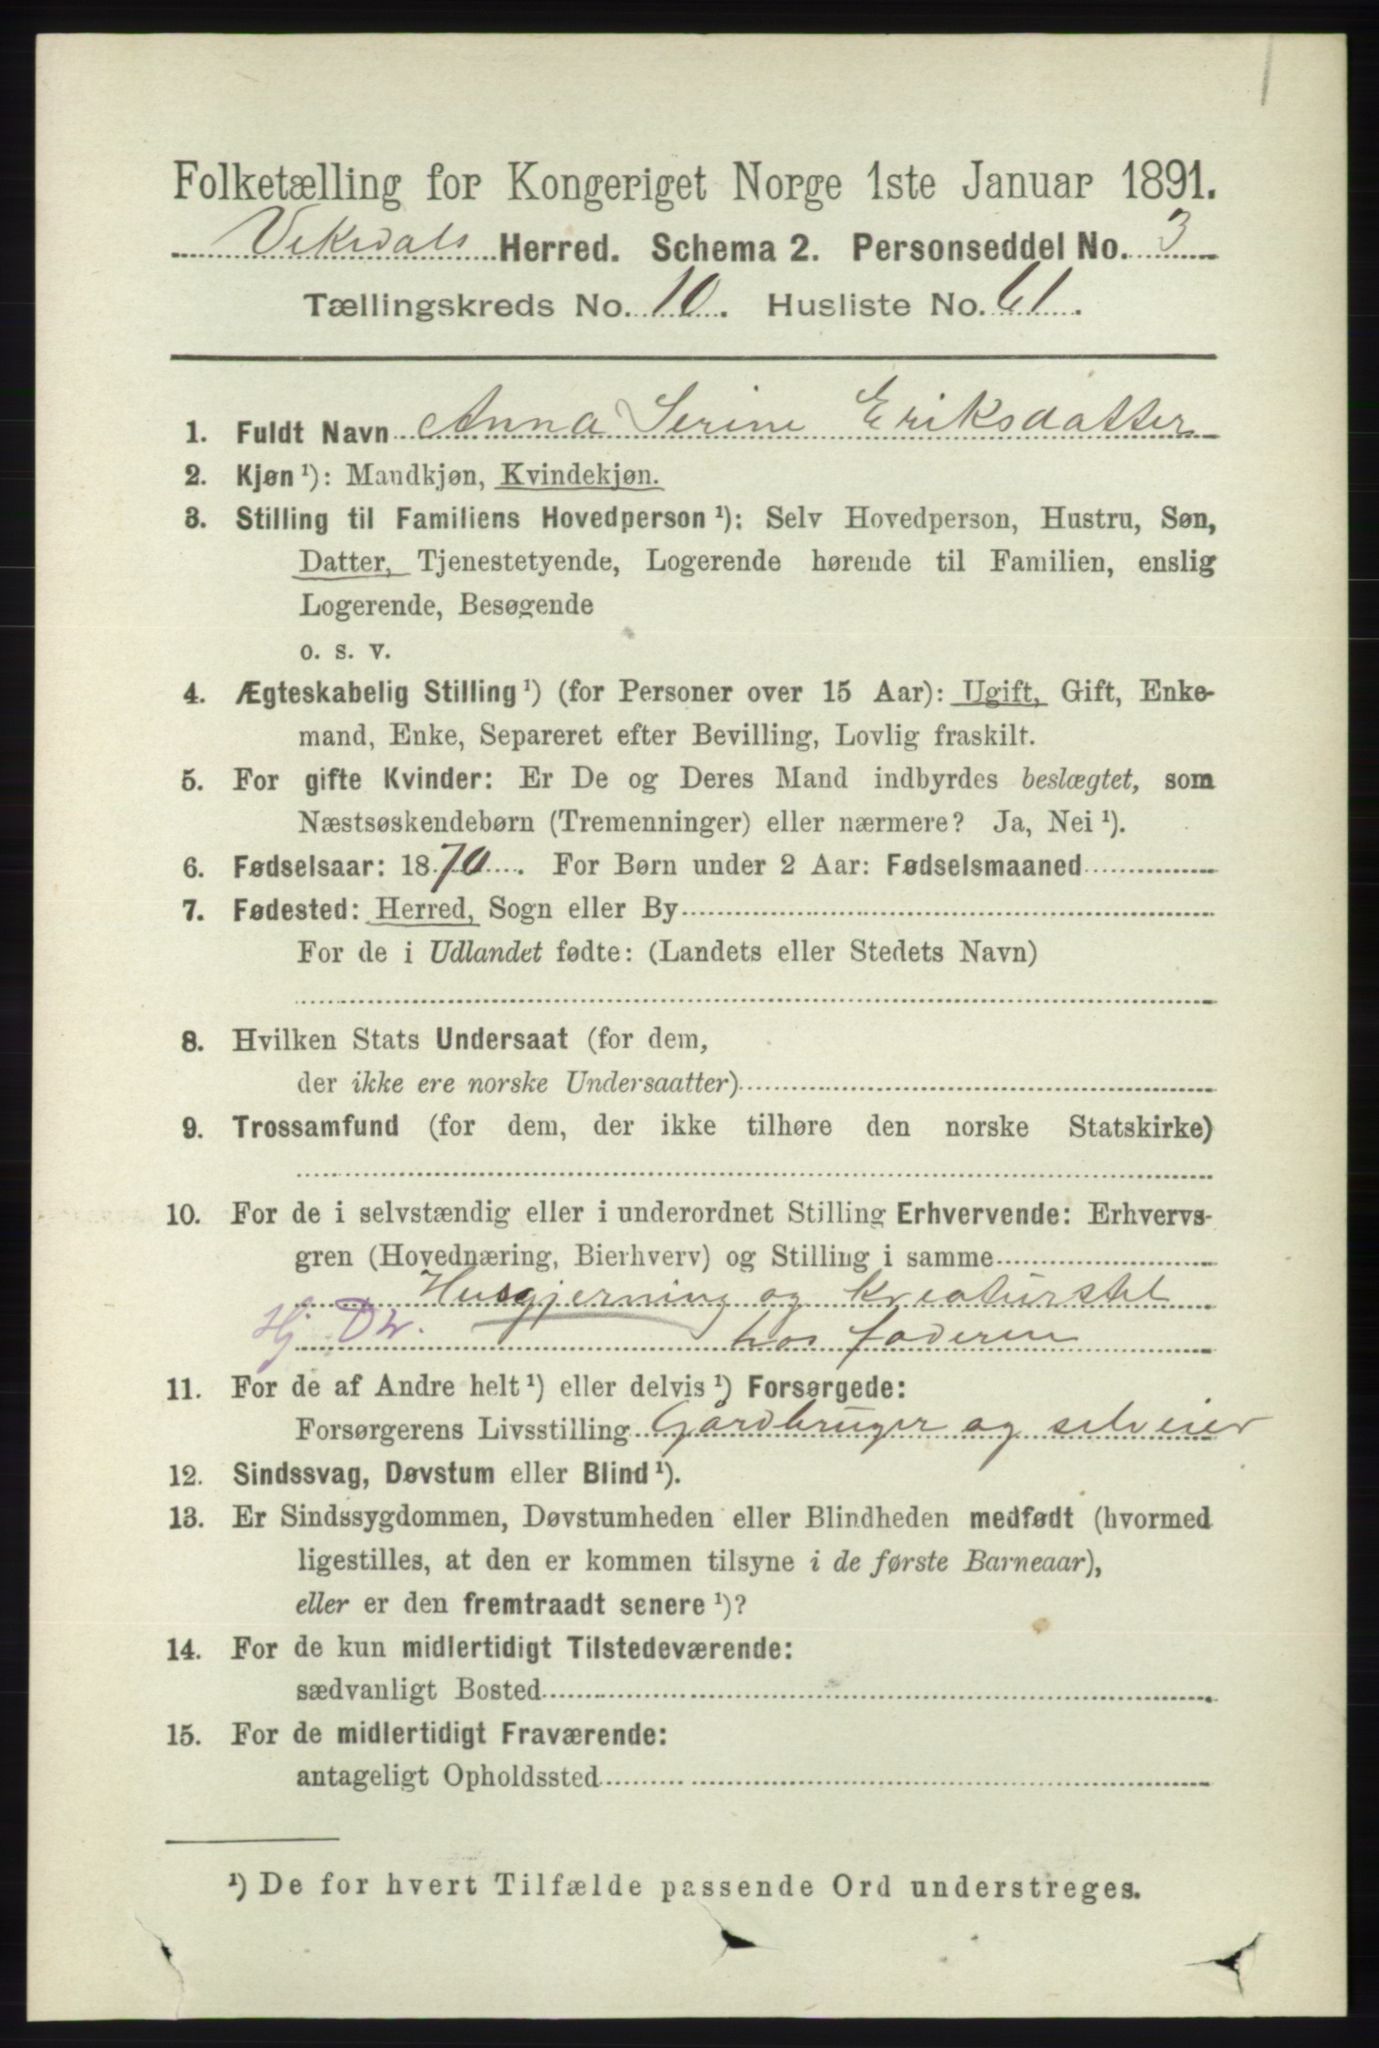 Folketælling for Kongeriget Norge 1ste Januar 1891.
Vikedals Herred. Schema 2. Personseddel No. 3
Tællingskreds No. 10. Husliste No. 61.
1. Fuldt Navn Anna Serine Eriksdatter
2. Kjøn¹): Mandkjøn, Kvindekjøn.
3. Stilling til Familiens Hovedperson¹): Selv Hovedperson, Hustru, Søn,
Datter, Tjenestetyende, Logerende hørende til Familien, enslig
Logerende, Besøgende
o. s. v.
4. Ægteskabelig Stilling¹) (for Personer over 15 Aar): Ugift, Gift, Enke-
mand, Enke, Separeret efter Bevilling, Lovlig fraskilt.
5. For gifte Kvinder: Er De og Deres Mand indbyrdes beslægtet, som
Næstsøskendebørn (Tremenninger) eller nærmere? Ja, Nei¹).
6. Fødselsaar: 1870. For Børn under 2 Aar: Fødselsmaaned
7. Fødested: Herred, Sogn eller By
For de i Udlandet fødte: (Landets eller Stedets Navn)
8. Hvilken Stats Undersaat (for dem,
der ikke ere norske Undersaatter)
9. Trossamfund (for dem, der ikke tilhøre den norske Statskirke)
10. For de i selvstændig eller i underordnet Stilling Erhvervende: Erhvervs-
gren (Hovednæring, Bierhverv) og Stilling i samme
Husgjerning og kreaturstel
Hj. Dtr. hos faderen
11. For de af Andre helt¹) eller delvis¹) Forsørgede:
Forsørgerens Livsstilling Gårdbruger og selveier
12. Sindssvag, Døvstum eller Blind¹).
13. Er Sindssygdommen, Døvstumheden eller Blindheden medfødt (hvormed
ligestilles, at den er kommen tilsyne i de første Barneaar),
eller er den fremtraadt senere¹)?
14. For de kun midlertidigt Tilstedeværende:
sædvanligt Bosted
15. For de midlertidigt Fraværende:
antageligt Opholdssted
¹) De for hvert Tilfælde passende Ord understreges.